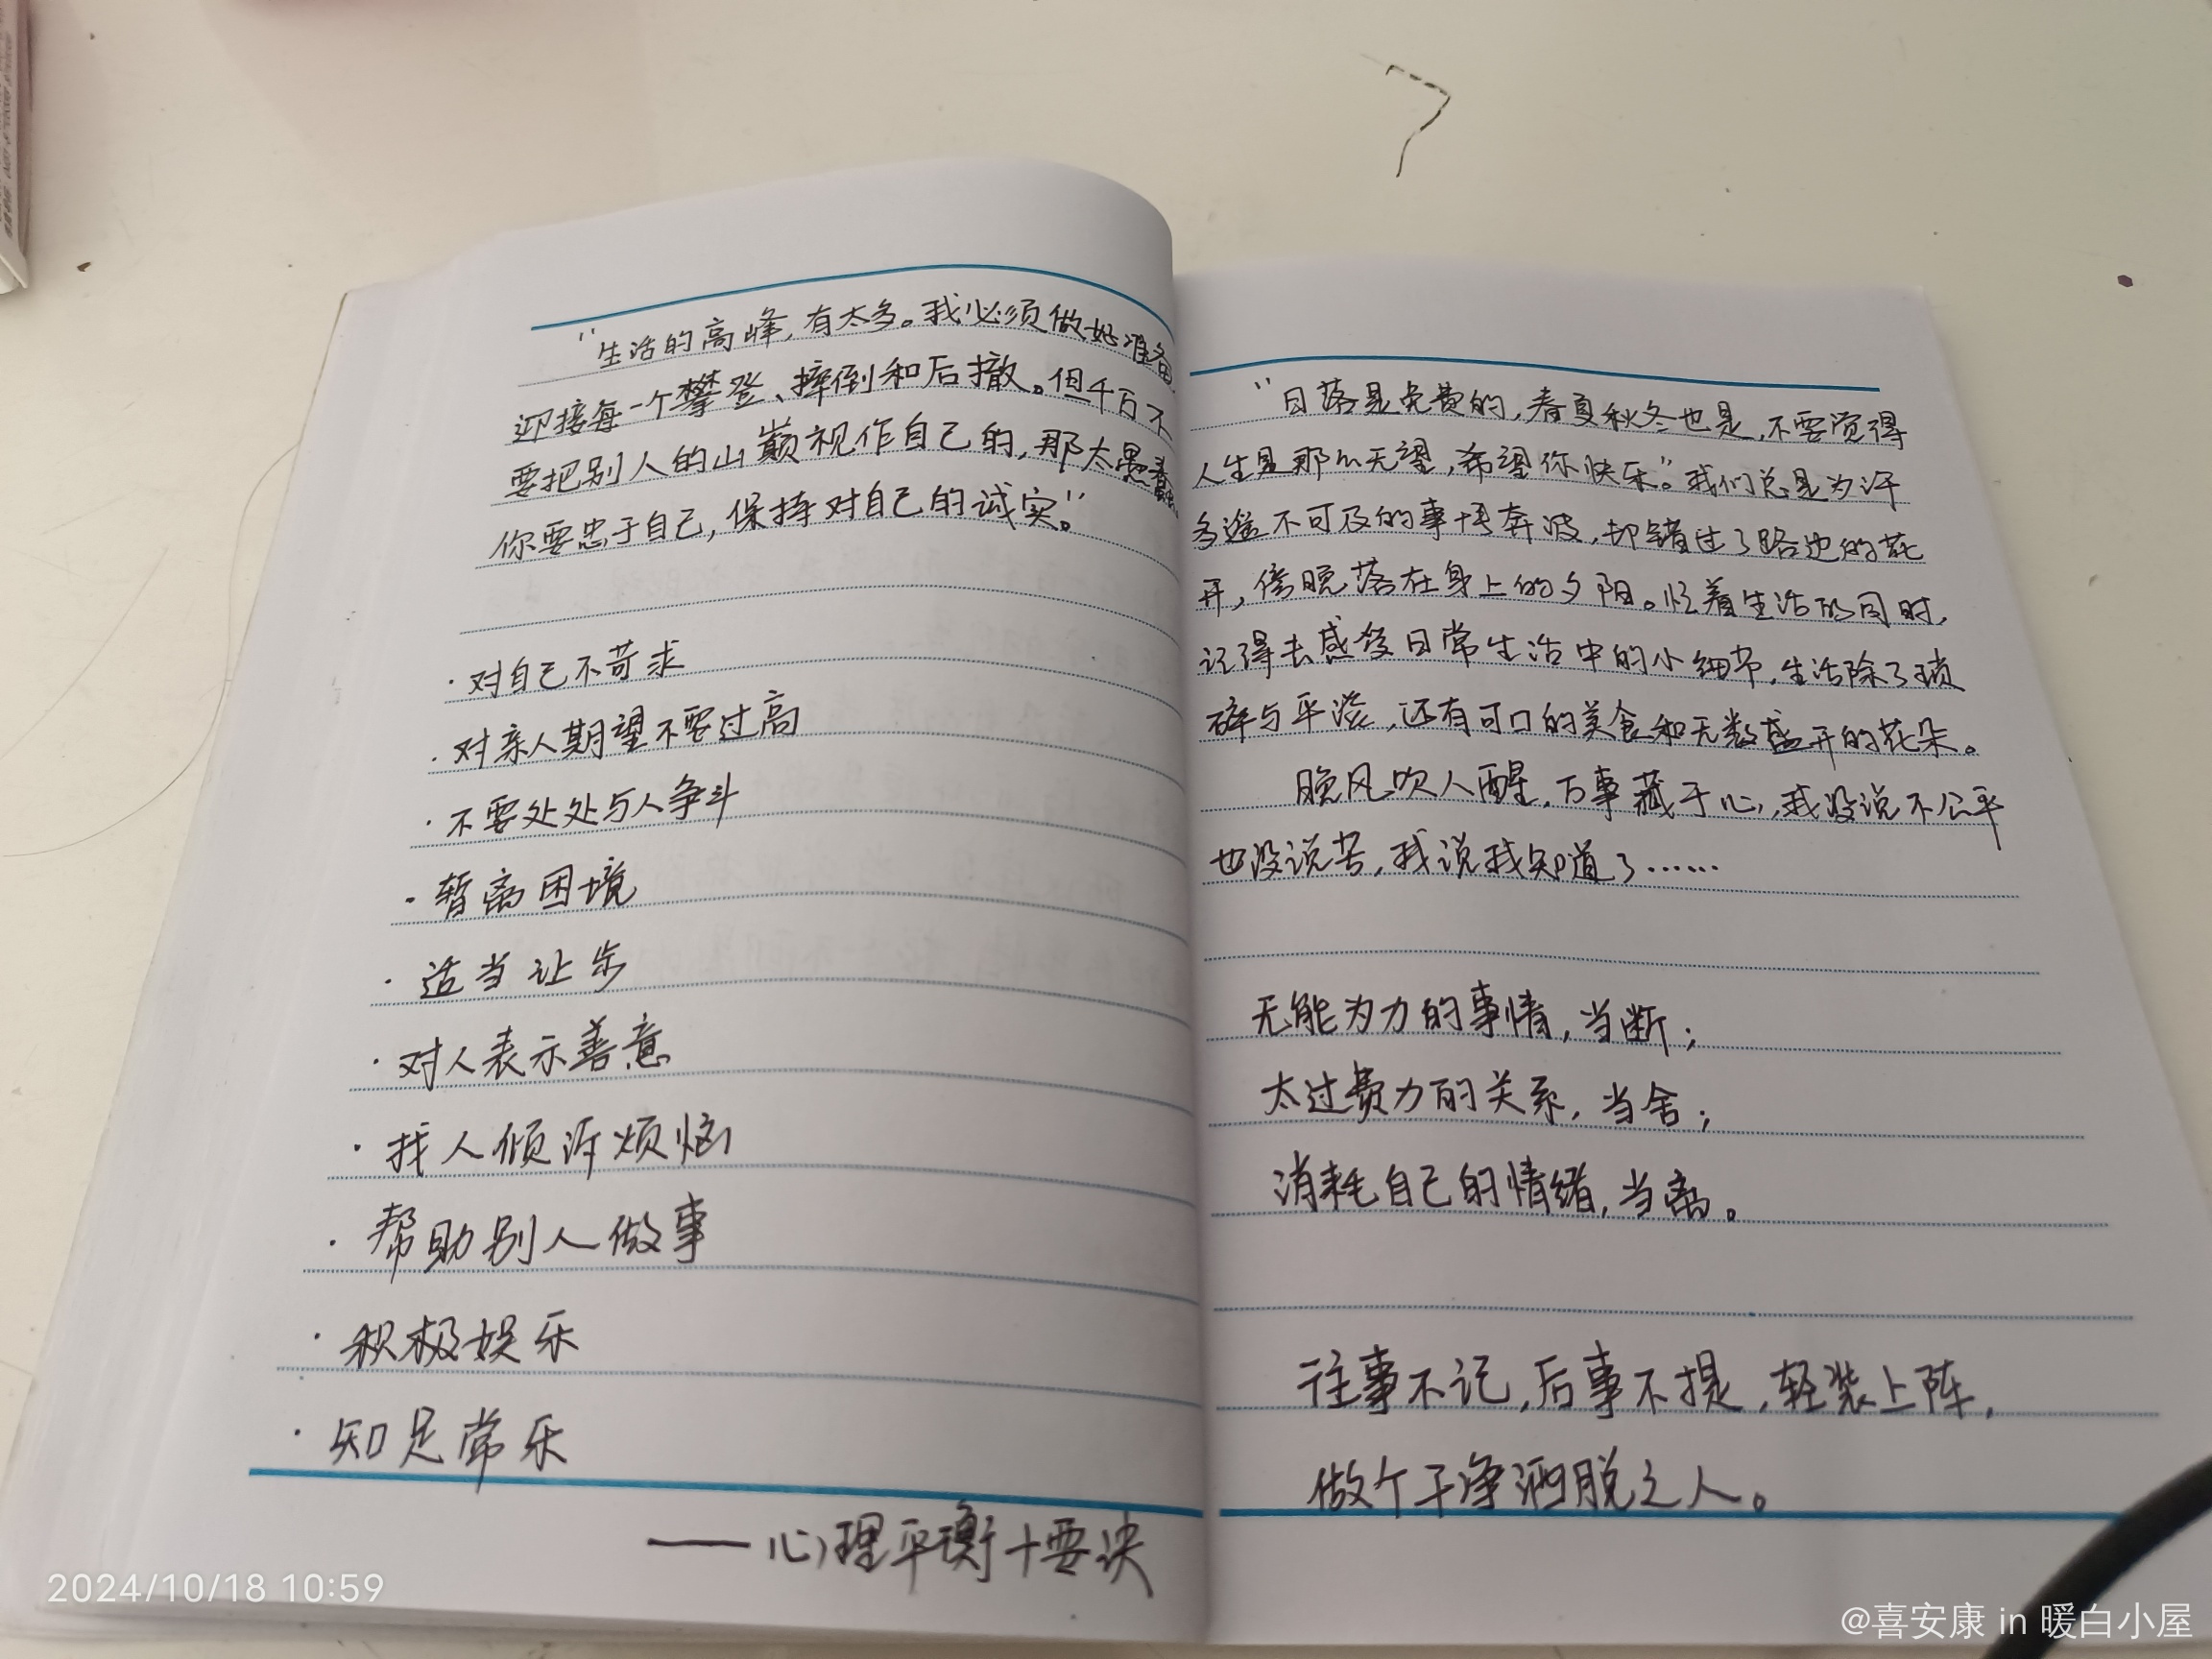 “生活的高峰，有太多。我必须做好准备
迎接每一个攀登、摔倒和后撤。但千万不
要把别人的山巅视作自己的，那太愚蠢
你要忠于自己，保持对自己的诚实。”
·对自己不苛求
·对亲人期望不要过高
·不要处处与人争斗
·暂离困境
·适当让步
·对人表示善意
·找人倾诉烦恼
·帮助别人做事
·积极娱乐
·知足常乐
——心理平衡十要诀
“日落是免费的，春夏秋冬也是，不要觉得
人生是那么无望，希望你快乐。”我们总是为许
多遥不可及的事情奔波，却错过了路边的花
开，傍晚落在身上的夕阳。忙着生活的同时，
记得去感受日常生活中的小细节，生活除了琐
碎与平淡，还有可口的美食和无数盛开的花朵。
晚风吹人醒，万事藏于心，我没说不公平
也没说苦，我说我知道了……
无能为力的事情，当断；
太过费力的关系，当舍；
消耗自己的情绪，当离。
往事不记，后事不提，轻装上阵，
做个干净洒脱之人。
2024/10/18 10:59
@喜安康 in 暖白小屋